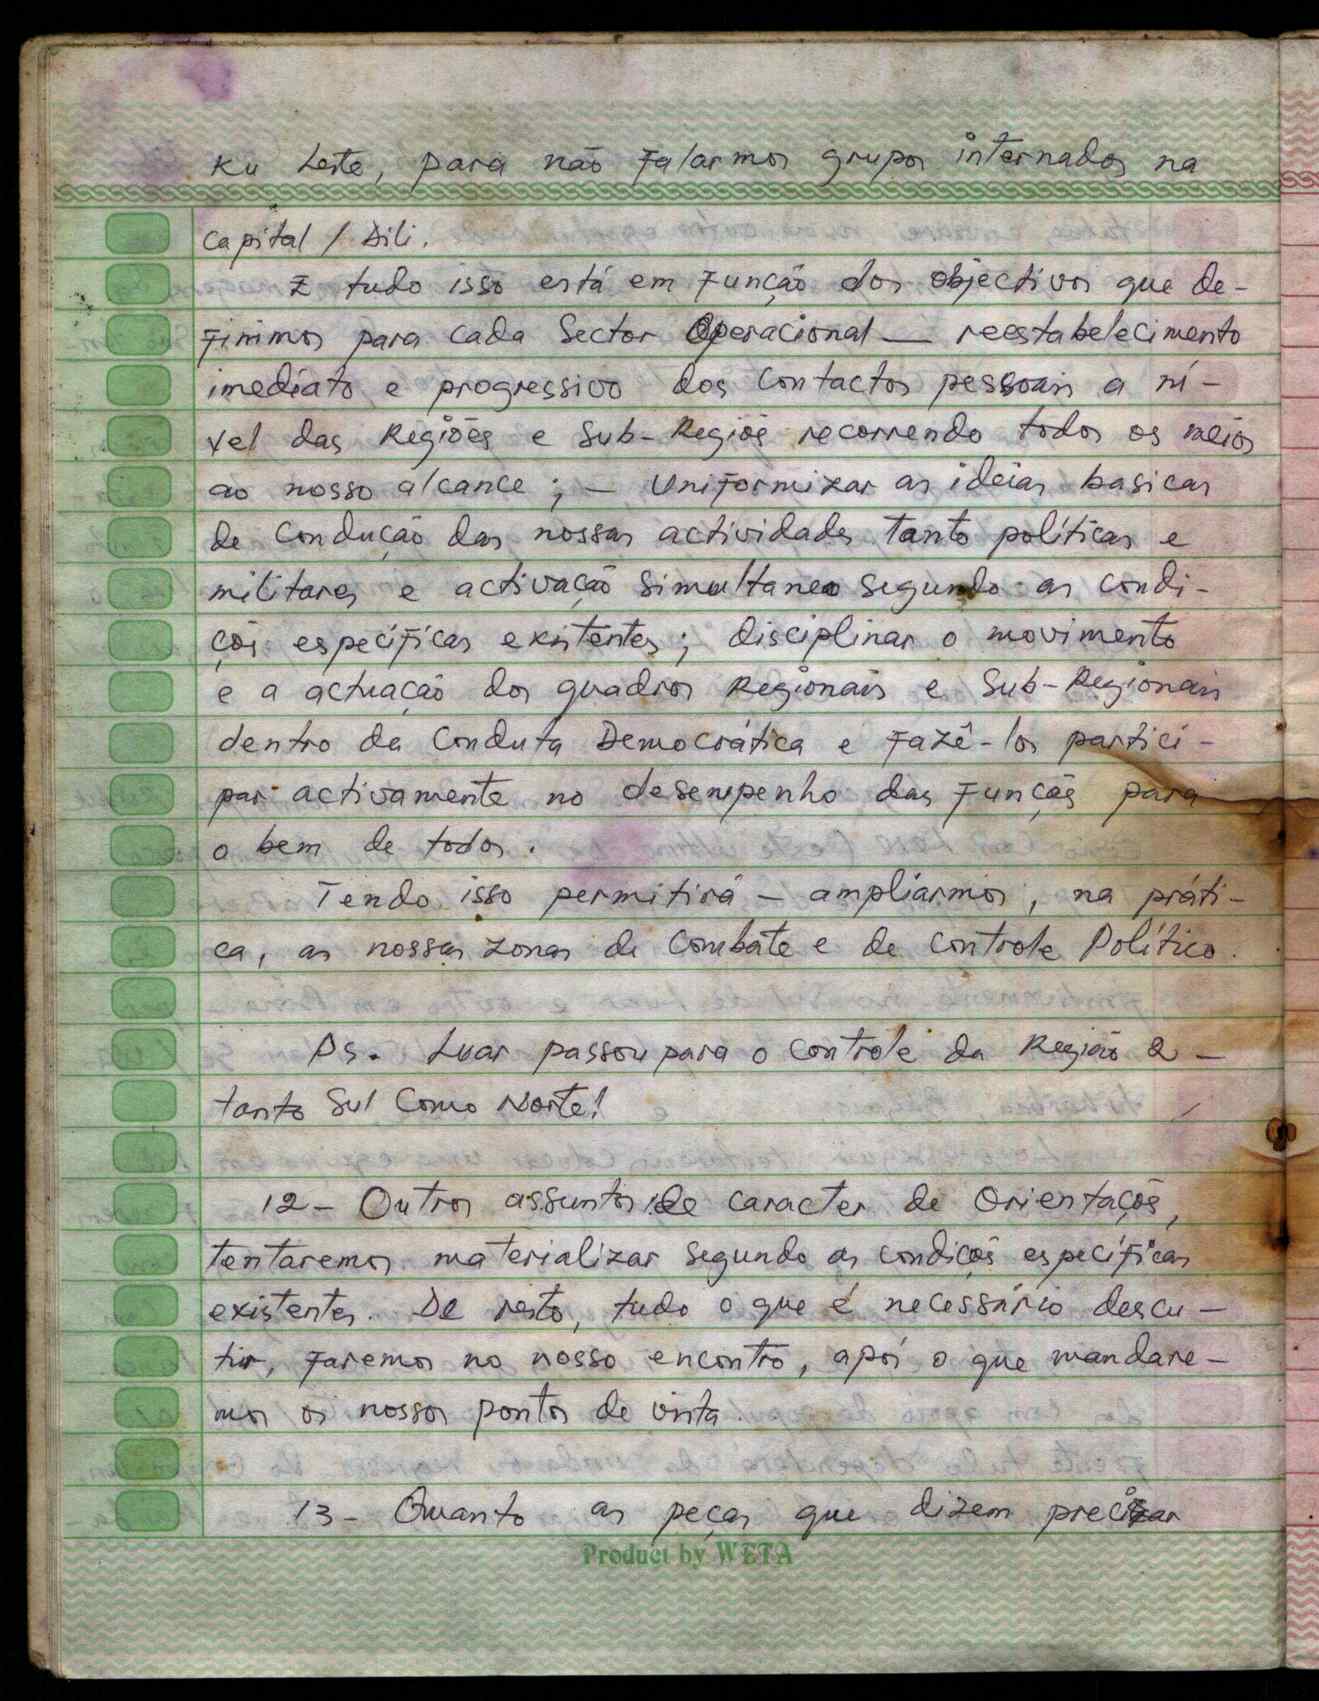 Ku Leste, para não falarmos grupos internados na
capital / Dili.
E tudo isso está em função dos objectivos que de-
finimos para cada Sector Operacional — reestabelecimento
imediato e progressivo dos contactos pessoais a ní-
vel das Regiões e Sub-Regiõs recorrendo todos os meios
ao nosso alcance ; — Uniformizar as ideias basicas
de condução das nossas actividades tanto políticas e
militares e activação simultanea segundo as condi-
çõs específicas existentes; disciplinar o movimento
e a actuação dos quadros Regionais e Sub-Regionais
dentro da Conduta Democrática e fazê-los partici-
par activamente no desempenho das funçõs para
o bem de todos.
Tendo isso permitirá — ampliarmos, na práti-
ca, as nossas zonas de Combate e de controle Político.
Ps. Luar passou para o controle da Região 2 —
tanto Sul Como Norte!
12- Outros assuntos de caracter de Orientaçõs,
tentaremos materializar segundo as condiçõs específicas
existentes. De resto, tudo o que é necessário descu-
tir, faremos no nosso encontro, após o que mandare-
mos os nossos pontos de vista.
13- Quanto as peças que dizem precisar
Product by WETA